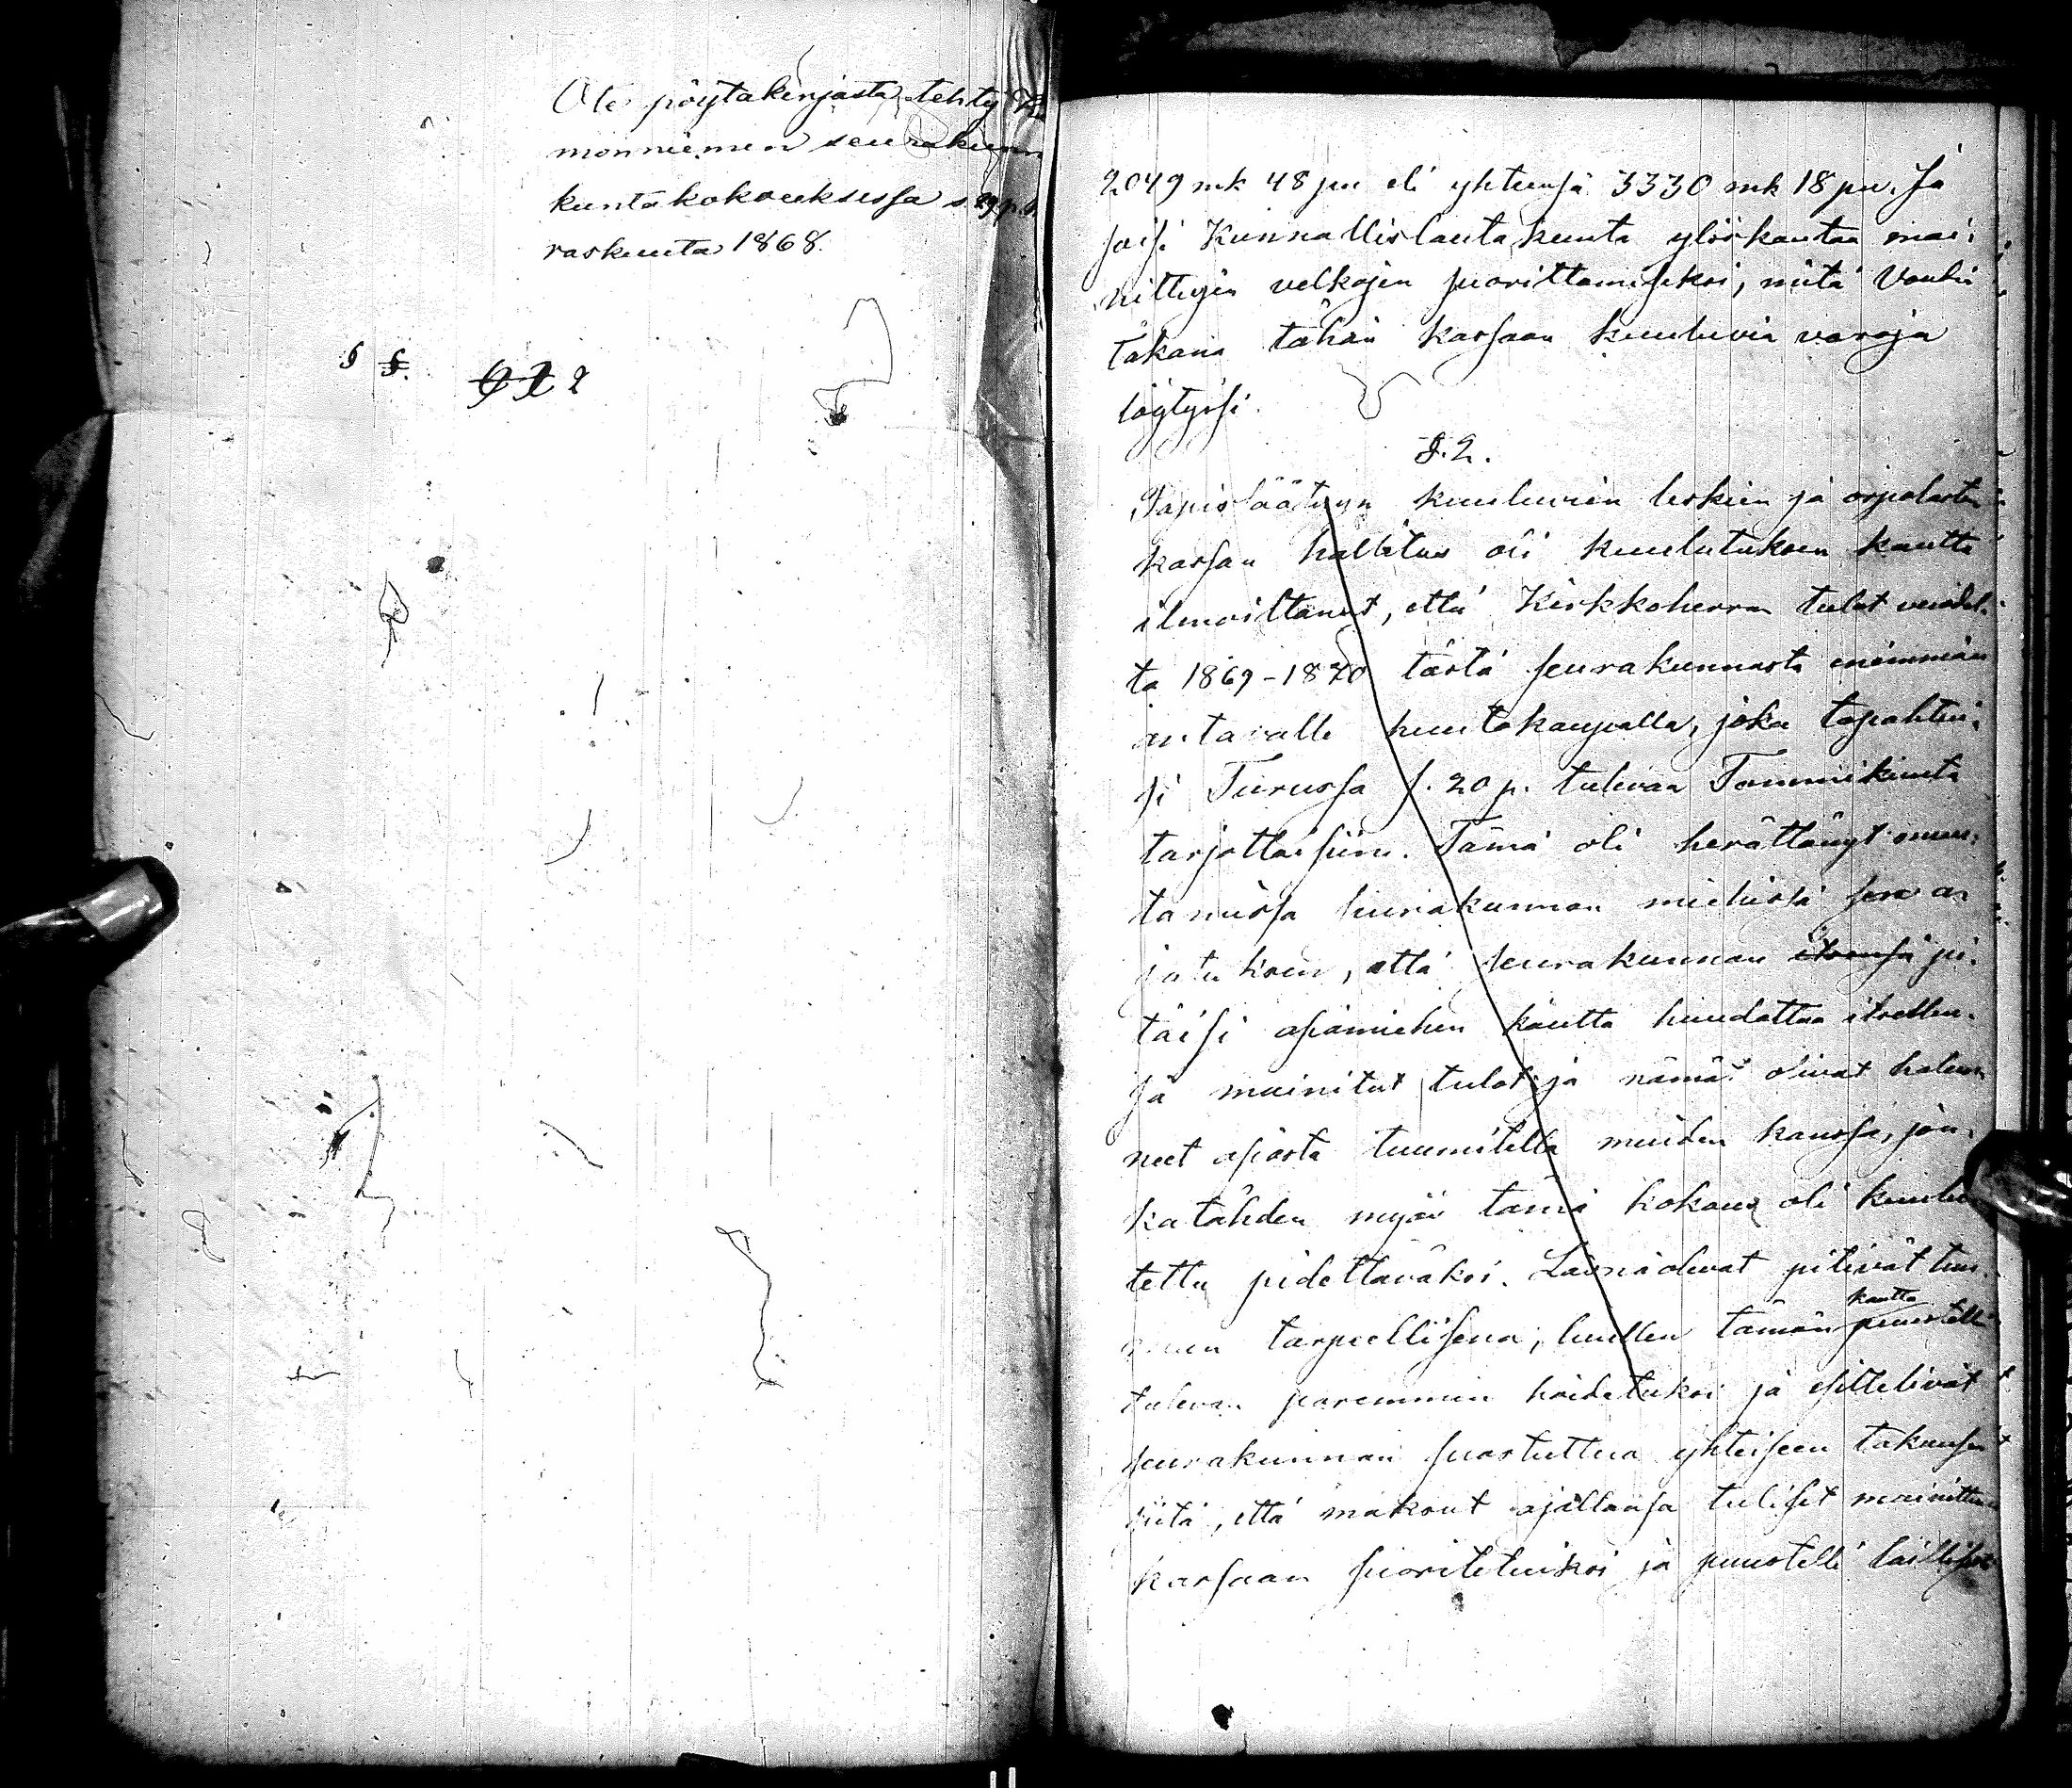 Ote pöytäkirjasta tehty
monniemen seurakunn
kuntakokouksessa s 29 p.
raskuuta 1868.
§ §. 2
2049 mk 48 pn eli yhteensä 3330 mk 18 pn. Ja
saisi Kunnallislautakunta ylöskantaa mai-
nittujen velkojen suorittamiseksi, mitä Voudin
takana tähän kassaan kuuluvia varoja
löytyisi.
§. 2.
Papissäätyyn kuuluvien leskien ja orpolasten
kassan hallitus oli kuulutuksen kautta
ilmoittanut, että Kirkkoherran tulot vuodel-
ta 1869-1870 tästä seurakunnasta enimmän
antavalle huutokaupalla, joka tapahtui-
si Turussa s. 20 p. tulevaa Tammikuuta
tarjottaisiin. Tämä oli herättänyt muu-
tamissa seurakunnan miehissä sen a-
jatuksen, että seurakunnan itsensä pi-
täisi asiamiehen kautta huudattaa itsellen-
sä mainitut tulot ja nämät olivat halun-
neet asiasta tuumitella muiden kanssa, jon-
ka tähden myös tämä kokous oli kuulu-
tettu pidettäväksi. Läsnäolevat pitivät tuu-
man tarpeellisena, luullen tämän kautta puustelli
tulevan paremmin hoidetuksi ja esittelivät
seurakunnan suostuttua yhteiseen takauseen
siitä, että maksut ajallansa tulisit mainittuun
kassaan suoritetuiksi ja puustelli laillises